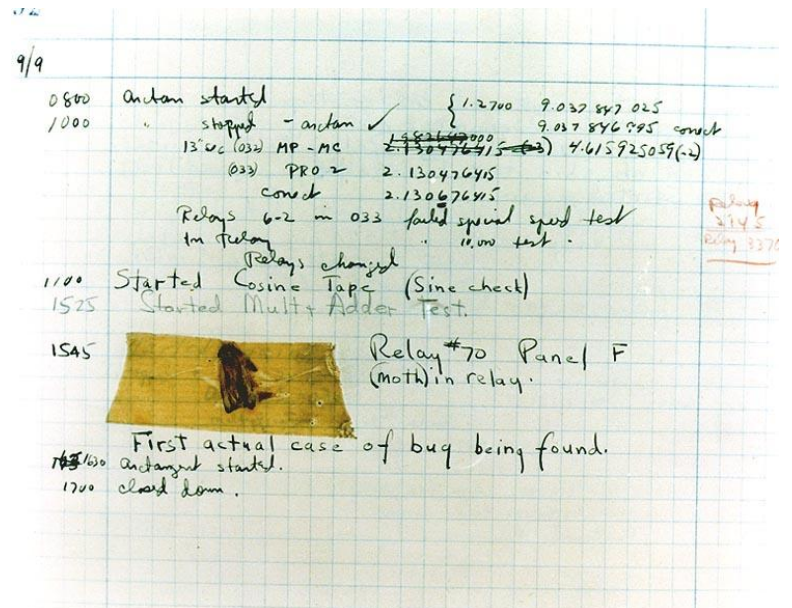 9/9
0800 antan started { 1.2700 9.037 847 025
1000 " stopped - antan ✓ 9.037 846 995 conect
13"uc (032) MP - MC 2.130476415 (-3) 4.615925059(-2)
(033) PRO 2 2.130476415
conect 2.130676415
Relays 6-2 in 033 failed special speed test
in relay " 10,000 test.
Relays changed
Relay
2145
Relay 3370
1100 Started Cosine Tape (Sine check)
1525 Started Mult + Adder Test.
1545 Relay #70 Panel F
(moth) in relay.
First actual case of bug being found.
1630 antangent started.
1700 closed down.